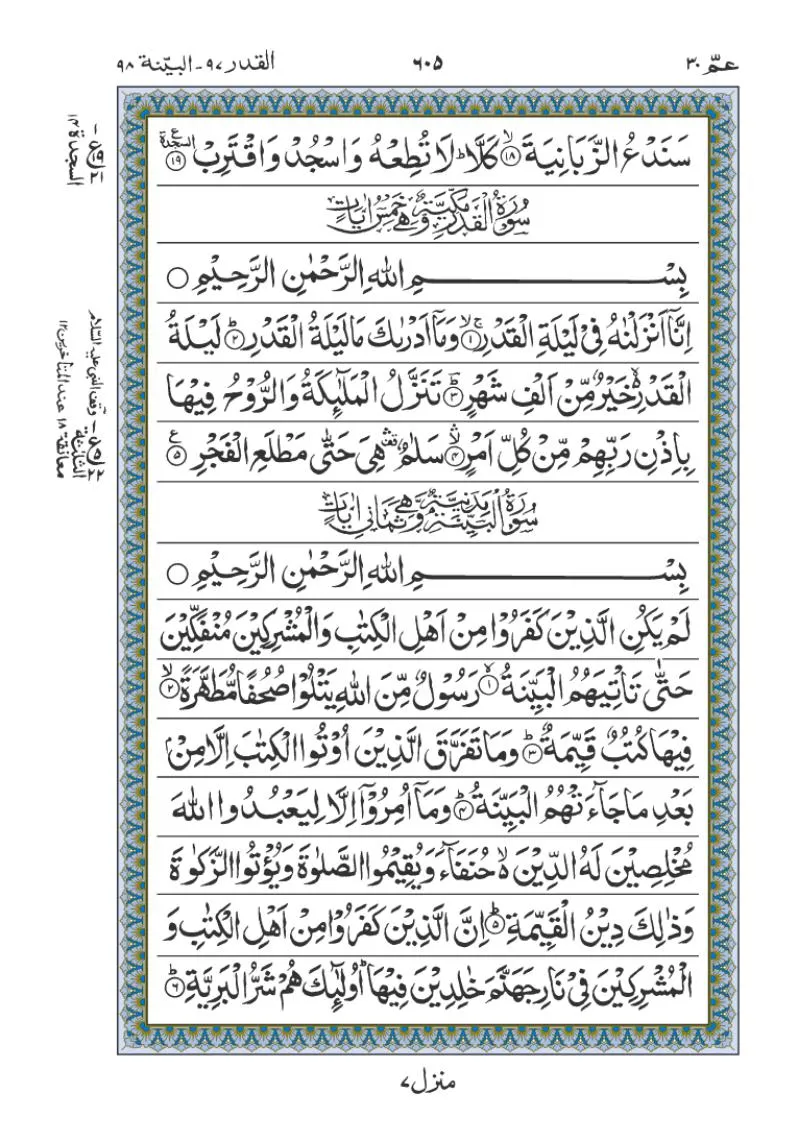 عـمّ ٣٠
٦٠٥
القدر ٩٧ - البيّنة ٩٨
سَنَدْعُ الزَّبَانِيَةَ ۙ‏﴿١٨﴾ كَلَّا ؕ لَا تُطِعْهُ وَاسْجُدْ وَاقْتَرِبْ ﴿١٩﴾
السجدة
ع
السجدة ١٤
سُوْرَةُ الْقَدْرِ مَكِّيَّةٌ وَّهِيَ خَمْسُ اٰيَاتٍ
بِسْــــــــمِ اللهِ الرَّحْمٰنِ الرَّحِيْمِ ○
اِنَّاۤ اَنْزَلْنٰهُ فِيْ لَيْلَةِ الْقَدْرِ ۚۖ ﴿١﴾ وَمَاۤ اَدْرٰىكَ مَا لَيْلَةُ الْقَدْرِ ؕ ﴿٢﴾ لَيْلَةُ
الْقَدْرِ ۙ۬ خَيْرٌ مِّنْ اَلْفِ شَهْرٍ ؕؔ ﴿٣﴾ تَنَزَّلُ الْمَلٰٓئِكَةُ وَالرُّوْحُ فِيْهَا
بِاِذْنِ رَبِّهِمْ مِّنْ كُلِّ اَمْرٍ ۙۛ ﴿٤﴾ سَلٰمٌ ۛ۫ هِيَ حَتّٰى مَطْلَعِ الْفَجْرِ ﴿٥﴾
ع
وقف النبى عليه السّلام
معانقة ١٨ عند المتأخرين ١٢
سُوْرَةُ الْبَيِّنَةِ مَدَنِيَّةٌ وَّهِيَ ثَمَانِيْ اٰيَاتٍ
بِسْــــــــمِ اللهِ الرَّحْمٰنِ الرَّحِيْمِ ○
لَمْ يَكُنِ الَّذِيْنَ كَفَرُوْا مِنْ اَهْلِ الْكِتٰبِ وَالْمُشْرِكِيْنَ مُنْفَكِّيْنَ
حَتّٰى تَاْتِيَهُمُ الْبَيِّنَةُ ۙ ﴿١﴾ رَسُوْلٌ مِّنَ اللهِ يَتْلُوْا صُحُفًا مُّطَهَّرَةً ۙ ﴿٢﴾
فِيْهَا كُتُبٌ قَيِّمَةٌ ؕ ﴿٣﴾ وَمَا تَفَرَّقَ الَّذِيْنَ اُوْتُوا الْكِتٰبَ اِلَّا مِنْۢ
بَعْدِ مَا جَآءَتْهُمُ الْبَيِّنَةُ ؕ ﴿٤﴾ وَمَاۤ اُمِرُوْۤا اِلَّا لِيَعْبُدُوا اللهَ
مُخْلِصِيْنَ لَهُ الدِّيْنَ ۙ حُنَفَآءَ وَيُقِيْمُوا الصَّلٰوةَ وَيُؤْتُوا الزَّكٰوةَ
وَذٰلِكَ دِيْنُ الْقَيِّمَةِ ؕ ﴿٥﴾ اِنَّ الَّذِيْنَ كَفَرُوْا مِنْ اَهْلِ الْكِتٰبِ وَ
الْمُشْرِكِيْنَ فِيْ نَارِ جَهَنَّمَ خٰلِدِيْنَ فِيْهَا ؕ اُولٰٓئِكَ هُمْ شَرُّ الْبَرِيَّةِ ؕ ﴿٦﴾
منزل ٧